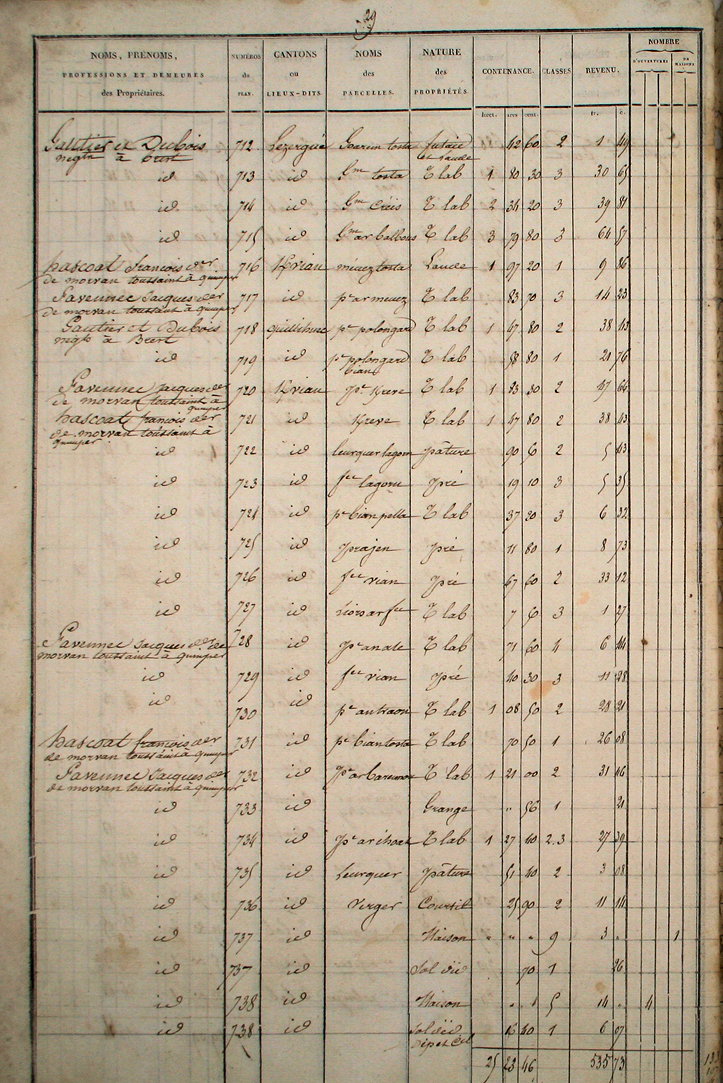 29
NOMS, PRENOMS, PROFESSIONS ET DEMEURES des Propriétaires. NUMÉROS du PLAN. CANTONS ou LIEUX-DITS. NOMS des PARCELLES. NATURE des PROPRIÉTÉS. CONTENANCE. CLASSES REVENU. NOMBRE D'OUVERTURES DE MAISONS
hect. ares cent. fr. c.
Gautier et Dubois 712 Lezergué Goarem tosta futaie 42 60 2 1 49
negts à Brest et Lande
id 713 id Gm tosta T lab 1 80 30 3 30 65
id 714 id Gm Creis T lab 2 34 20 3 39 81
id 715 id Gm ar T lab 3 79 80 3 64 57
hascoat francois der 716 Kvian menez tosta Lande 1 97 20 1 9 86
de morvan toussaint à quimper
Lavennec Jacques der 717 id pc ar menez T lab 83 70 3 14 23
de morvan toussaint à quimper
Gautier et Dubois 718 pc polongard T lab 1 47 80 2 38 43
negts à Brest
id 719 id pc polongard T lab 58 80 1 21 76
bian
Lavennec Jacques der 720 Kvian pc Kreve T lab 1 83 30 2 47 64
de morvan toussaint à quimper
hascoat francois der 721 id Kreve T lab 1 47 80 2 38 43
de morvan toussaint à quimper
id 722 id leurquer lagom pâture 90 60 2 5 43
id 723 id fec lagom pré 19 10 3 5 35
id 724 id pc bian pella T lab 37 20 3 6 32
id 725 id prajen pré 11 80 1 8 73
id 726 id fec vian pré 47 60 2 33 12
id 727 id T lab 7 60 3 1 27
Lavennec Jacques der de 728 id T lab 71 60 4 6 44
morvan toussaint à quimper
id 729 id fec vian pré 40 30 3 11 28
id 730 pc antraon T lab 1 08 50 2 28 21
hascoat francois der 731 id pc bian tosta T lab 70 50 1 26 08
de morvan toussaint à quimper
Lavennec Jacques der 732 id T lab 1 21 00 2 31 46
de morvan toussaint à quimper
id 733 id Grange " 56 1 21
id 734 id T lab 1 27 60 2.3 27 39
id 735 id leurquer pâture 51 40 2 3 08
id 736 id verger Courtil 25 90 2 11 14
id 737 id Maison " " " 9 3 " 1
id 737 id Sol 70 1 26
id 738 id Maison " 1 5 14 " 4
id 738 id Sol 16 40 1 6 07
25 23 46 535 73